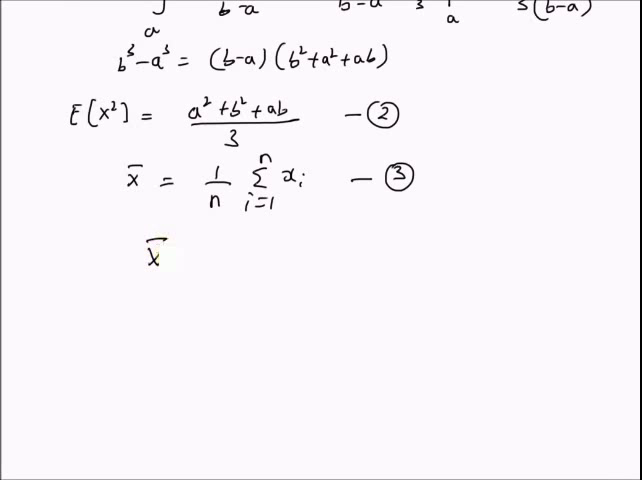 ∫ₐ b-a b-a 3 |ₐ 3(b-a)
b³-a³ = (b-a)(b²+a²+ab)
E[x²] = (a²+b²+ab)/3 — ②
x̄ = 1/n Σᵢ₌₁ⁿ xᵢ — ③
x̄